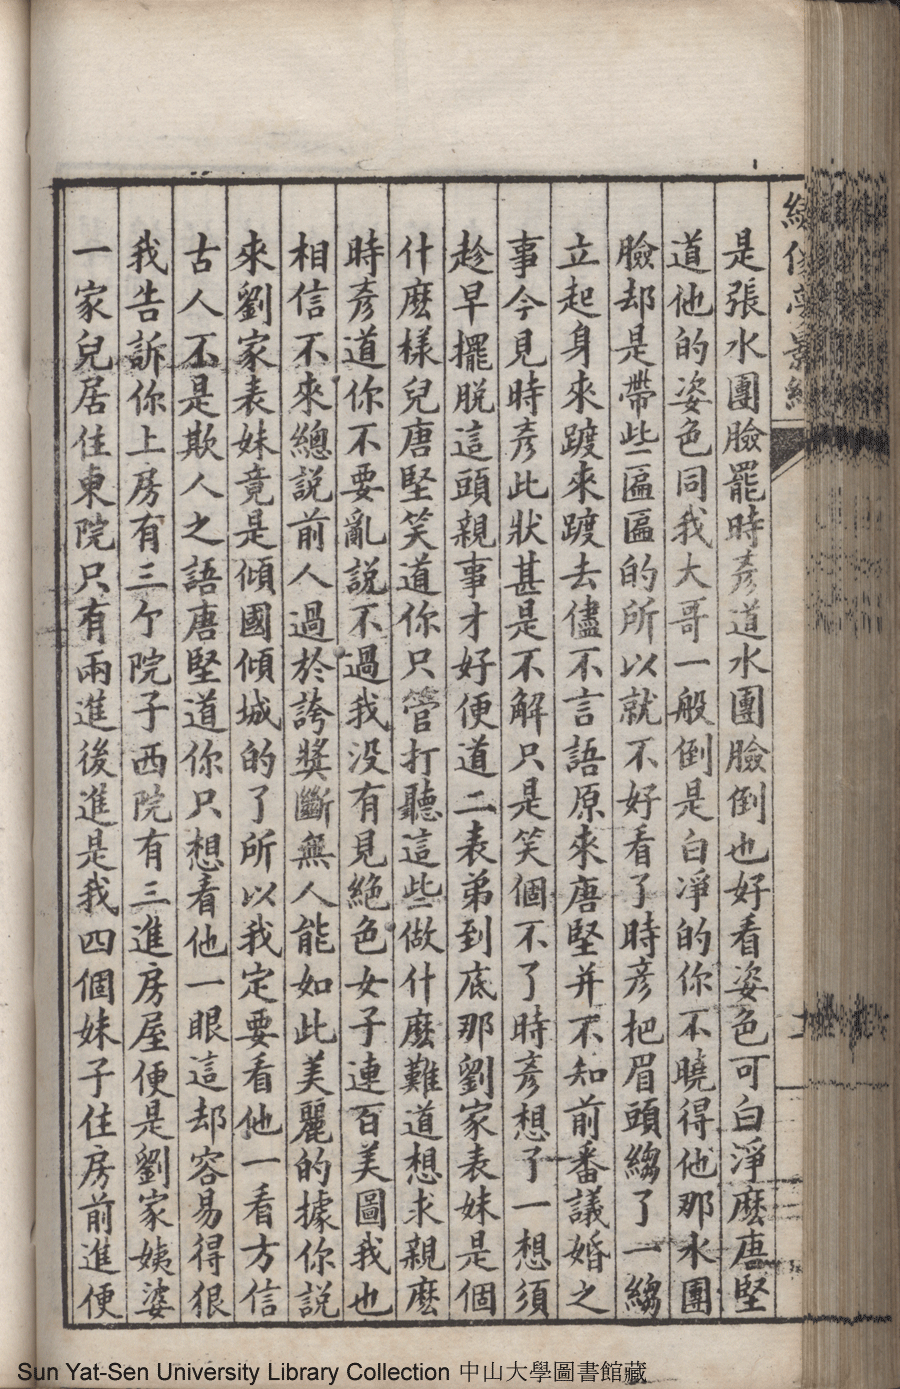 是張水團臉罷時彥道水團臉倒也好看姿色可白淨麽唐堅
道他的姿色同我大哥一般倒是白凈的你不曉得他那水團
臉却是帶些匾匾的所以就不好看了時彥把眉頭縐了一縐
立起身來踱來踱去儘不言語原來唐堅并不知前番議婚之
事今見時彥此狀甚是不解只是笑個不了時彥想了一想須
趁早擺脫這頭親事才好便道二表弟到底那劉家表妹是個
什麽樣兒唐堅笑道你只管打聽這些做什麽難道想求親麽
時彥道你不要亂說不過我没有見絶色女子連百美圖我也
相信不來總說前人過於誇獎斷無人能如此美麗的據你說
來劉家表妹竟是傾國傾城的了所以我定要看他一看方信
古人不是欺人之語唐堅道你只想看他一眼這却容易得狠
我告訴你上房有三个院子西院有三進房屋便是劉家姨婆
一家兒居住東院只有兩進後進是我四個妹子住房前進便
Sun Yat-Sen University Library Collection 中山大學圖書館藏